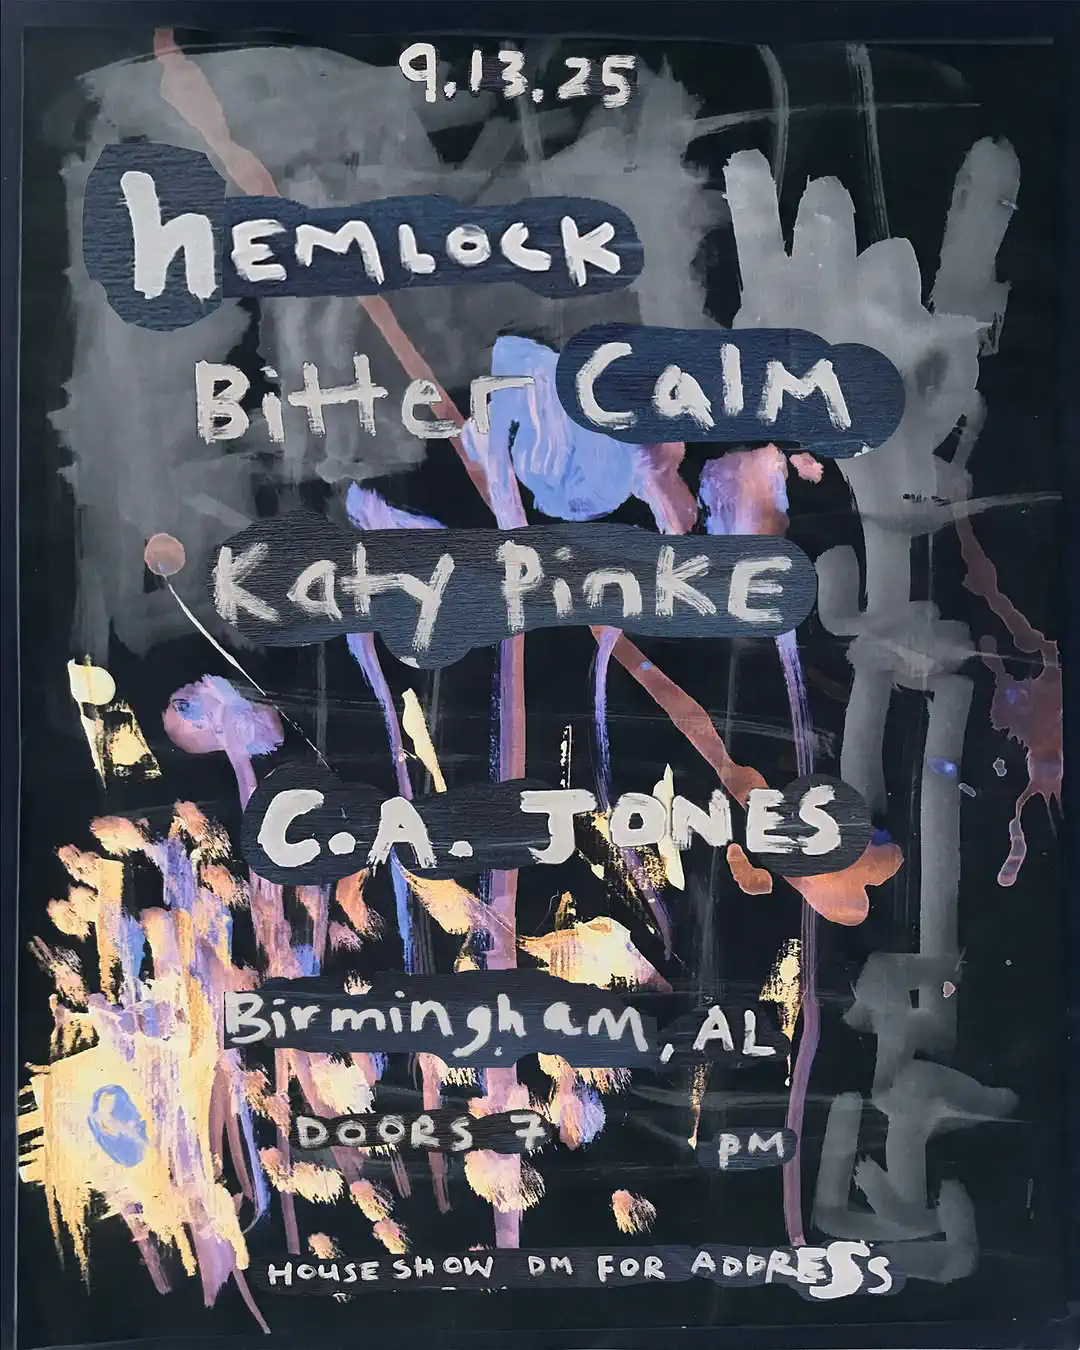 9.13.25
hEMLOCK
Bitter CalM
Katy PinKE
C.A. JONES
Birmingham, AL
DOORS 7 PM
HOUSE SHOW DM FOR ADDRESS